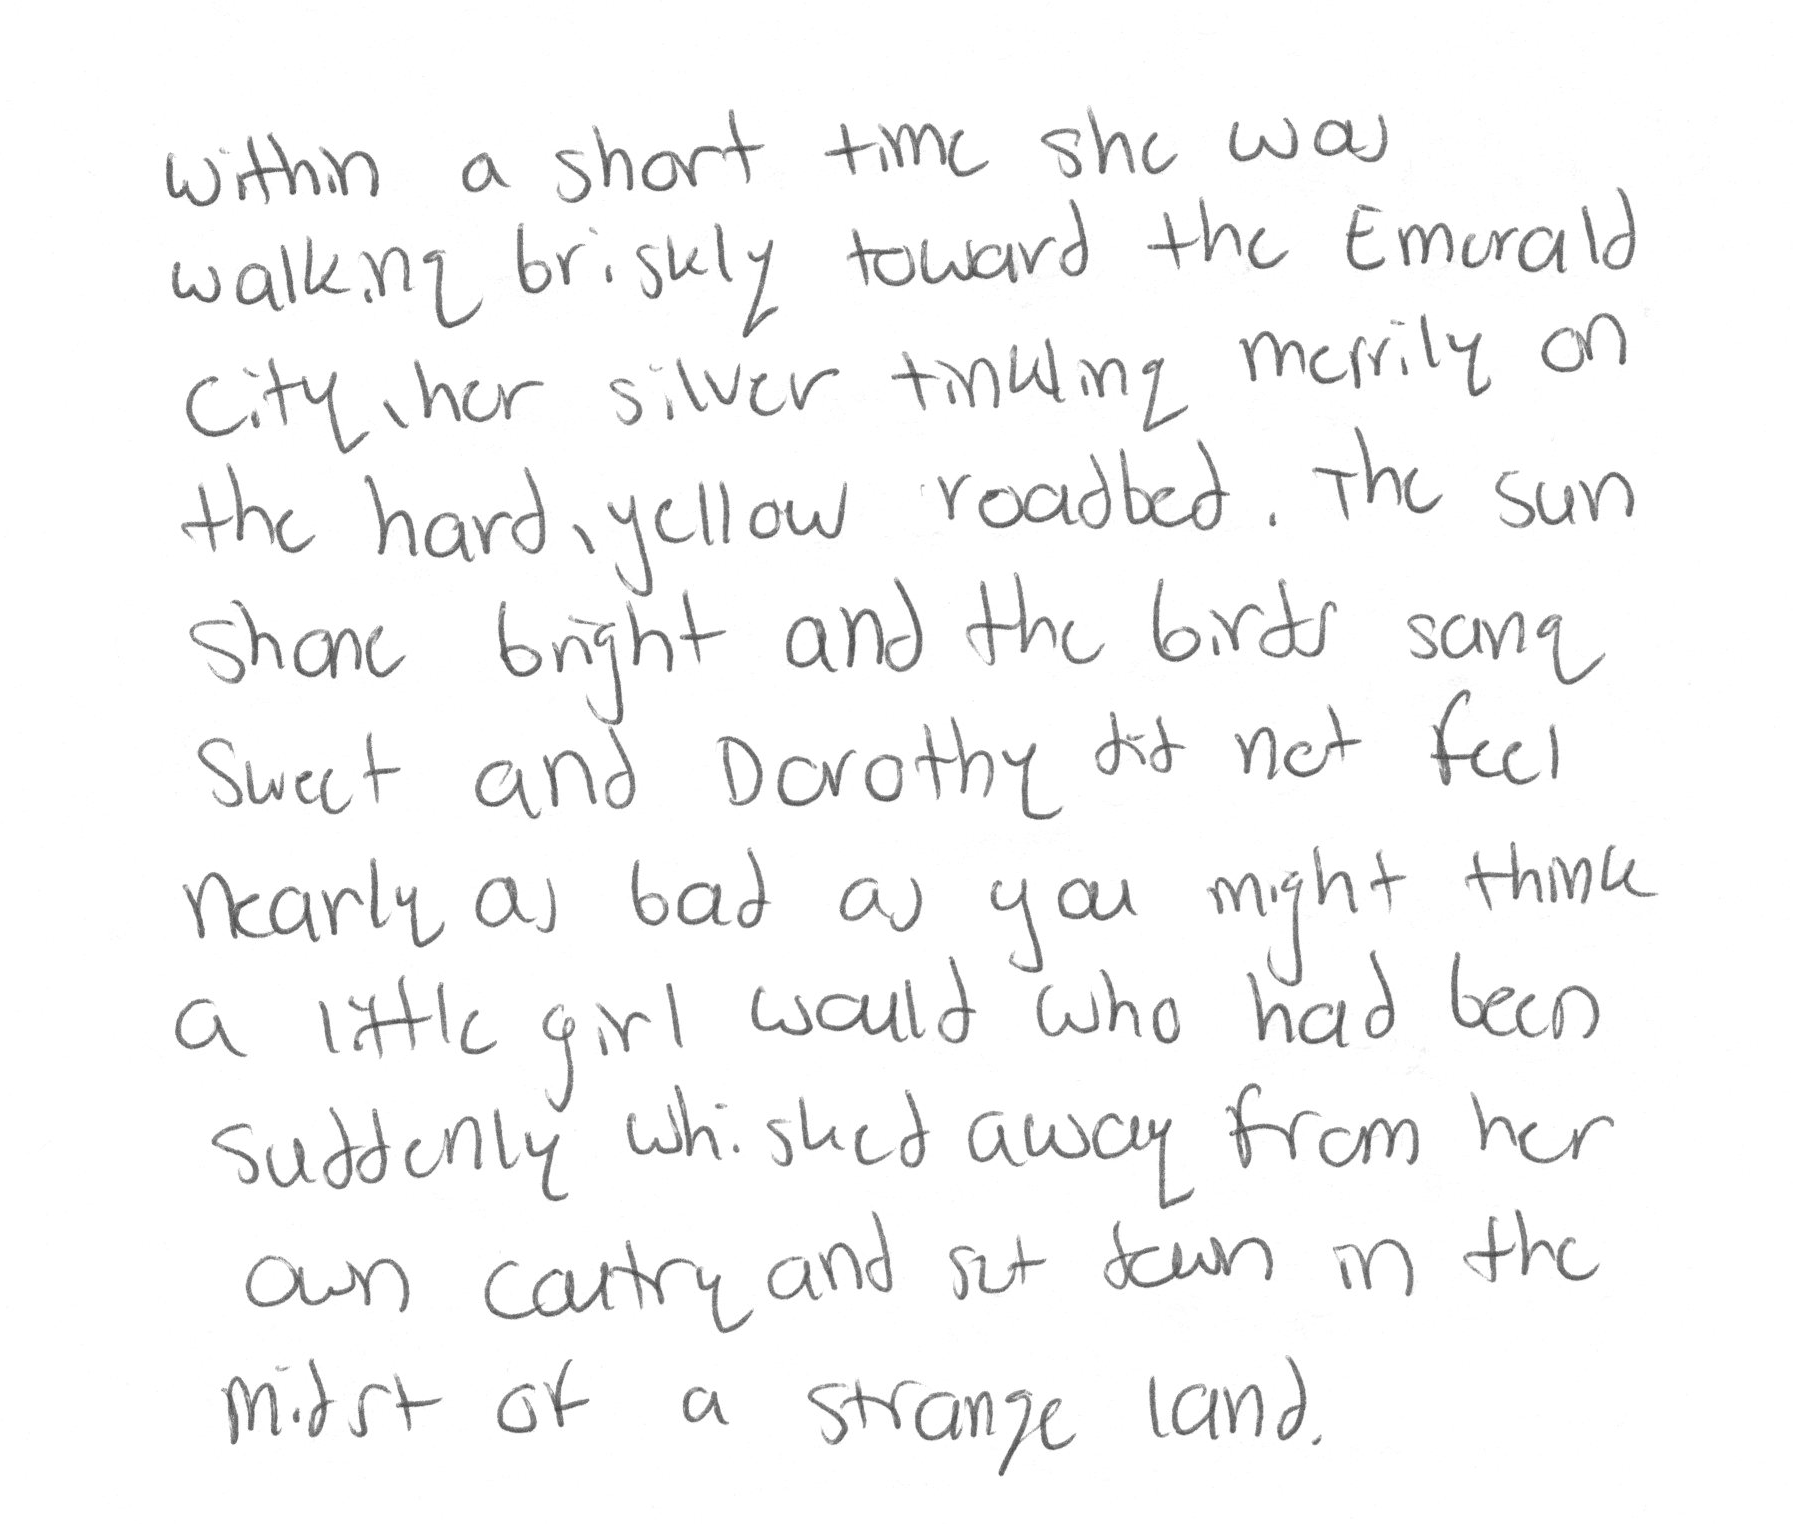 within a short time she was
walking briskly toward the Emerald
City, her silver tinkling merrily on
the hard, yellow roadbed. The sun
shone bright and the birds sang
sweet and Dorothy did not feel
nearly as bad as you might think
a little girl would who had been
suddenly whisked away from her
own coutry and set down in the
midst of a strange land.